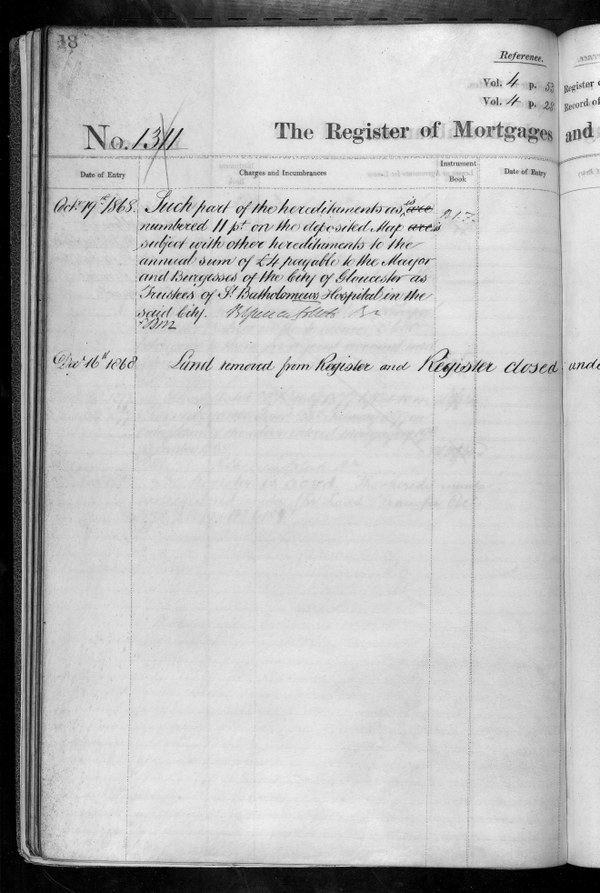 18
Reference.
Vol. 4 p. 52
Vol. 4 p. 28
Register
Record of
No. 1311
The Register of Mortgages
and
Date of Entry
Charges and Incumbrances
Instrument
Book
Date of Entry
Octr. 19th 1868.
Such part of the hereditaments as is are
numbered 11 pt on the deposited Map are is
subject with other hereditaments to the
annual sum of £4 payable to the Mayor
and Burgesses of the City of Gloucester as
Trustees of St. Bartholomews Hospital in the
said City.
Decr. 16th 1868
Land removed from Register and Register closed